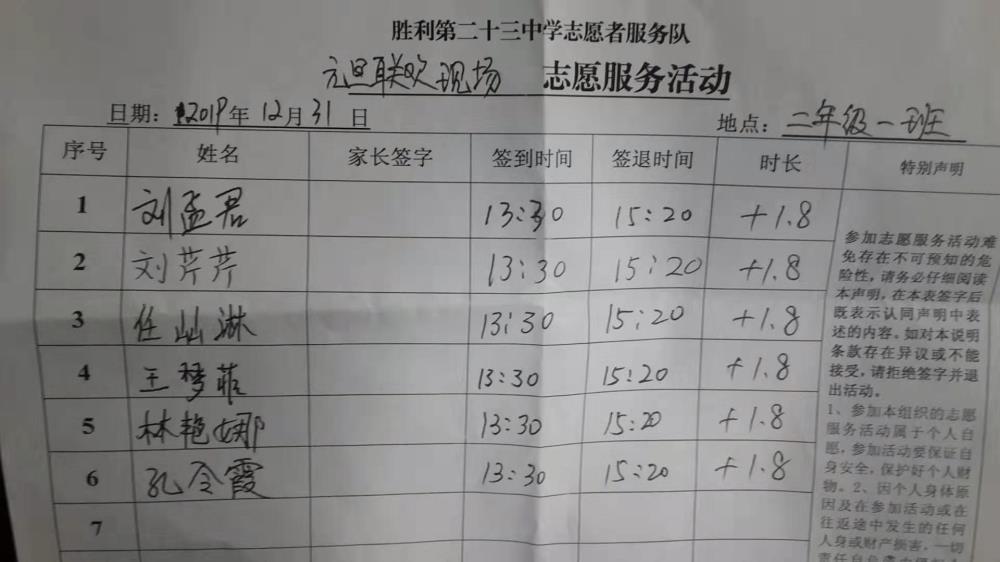 胜利第二十三中学志愿者服务队
元旦联欢现场 志愿服务活动
日期：2019年12月31日 地点：二年级一班
序号 姓名 家长签字 签到时间 签退时间 时长 特别声明
1 刘孟君 13:30 15:20 +1.8
2 刘芹芹 13:30 15:20 +1.8
3 任灿淋 13:30 15:20 +1.8
4 王梦菲 13:30 15:20 +1.8
5 林艳娜 13:30 15:20 +1.8
6 孔令霞 13:30 15:20 +1.8
7
参加志愿服务活动难
免存在不可预知的危
险性，请务必仔细阅读
本声明，在本表签字后
既表示认同声明中表
述的内容。如对本说明
条款存在异议或不能
接受，请拒绝签字并退
出活动。
1、参加本组织的志愿
服务活动属于个人自
愿，参加活动要保证自
身安全，保护好个人财
物。2、因个人身体原
因及在参加活动或在
往返途中发生的任何
人身或财产损害，一切
责任自负